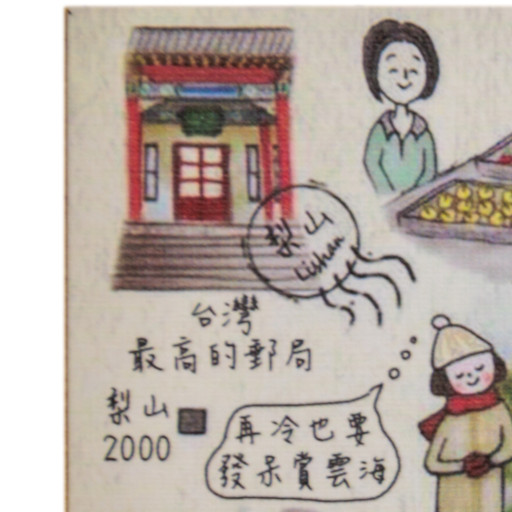 梨山
Lishan
台灣
最高的郵局
梨山
2000
再冷也要
發呆賞雲海